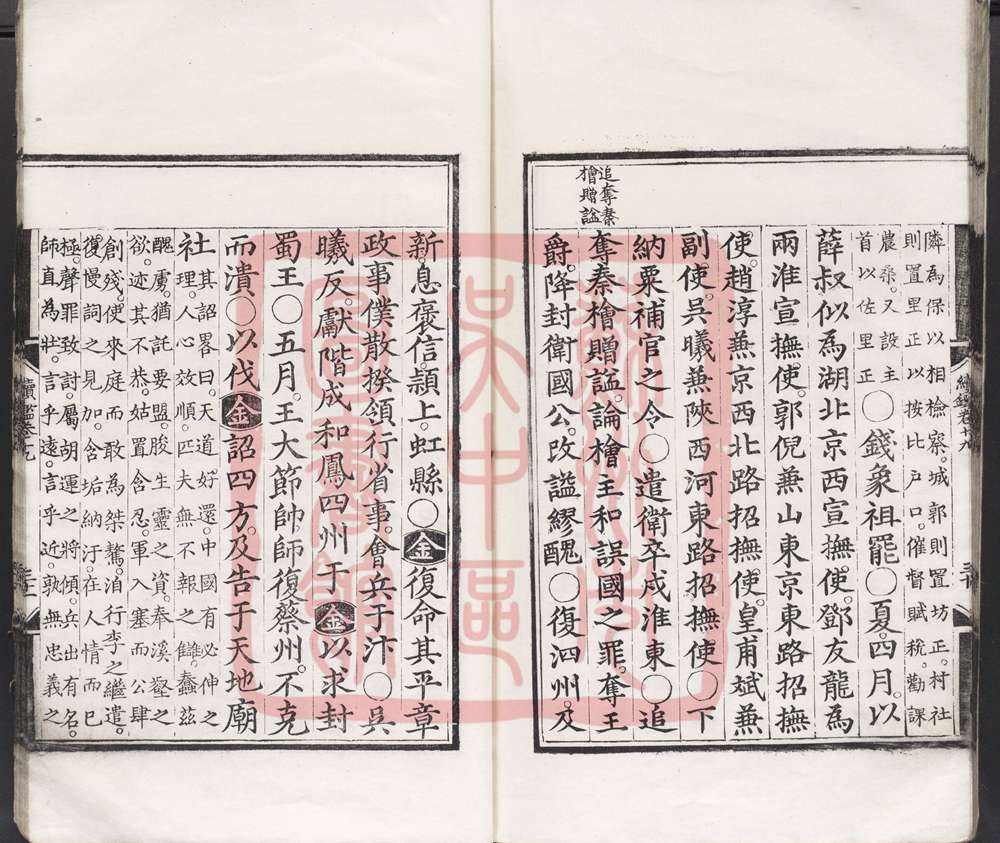 隣為保以相檢察。城郭則置坊正。村社
則置里正以按比戶口。催督賦稅。勸課
農桒。又設主
首以佐里正
○錢象祖罷○夏。四月。以
薛叔似為湖北京西宣撫使。鄧友龍為
兩淮宣撫使。郭倪兼山東京東路招撫
使。趙淳兼京西北路招撫使。皇甫斌兼
副使。吳曦兼陝西河東路招撫使○下
納粟補官之令○遣衛卒戍淮東○追
奪秦檜贈謚。論檜主和誤國之罪。奪王
爵。降封衛國公。改謚繆醜○復泗州。及
追奪秦
檜贈謚
續鑑卷十九
三十
新息褒信。頴上。虹縣○金復命其平章
政事僕散揆領行省事。會兵于汴○吳
曦反。獻階成和鳳四州于金以求封
蜀王○五月。王大節帥師復蔡州。不克
而潰○以伐金詔四方。及告于天地廟
社
其詔畧曰。天道好還。中國有必伸之
理。人心效順。匹夫無不報之讎。蠢茲
醜虜。猶託要盟。朘生靈之資。奉溪壑之
欲。迹其不恭。姑置含忍。軍入塞而公肆
創殘。使來庭而敢為桀驁。洎行李之繼遣。
復慢詞之見加。含垢納汙。在人情而已
極。聲罪致討。屬胡運之將傾。兵出有名。
師直為壯。言乎遠。言乎近。孰無忠義之